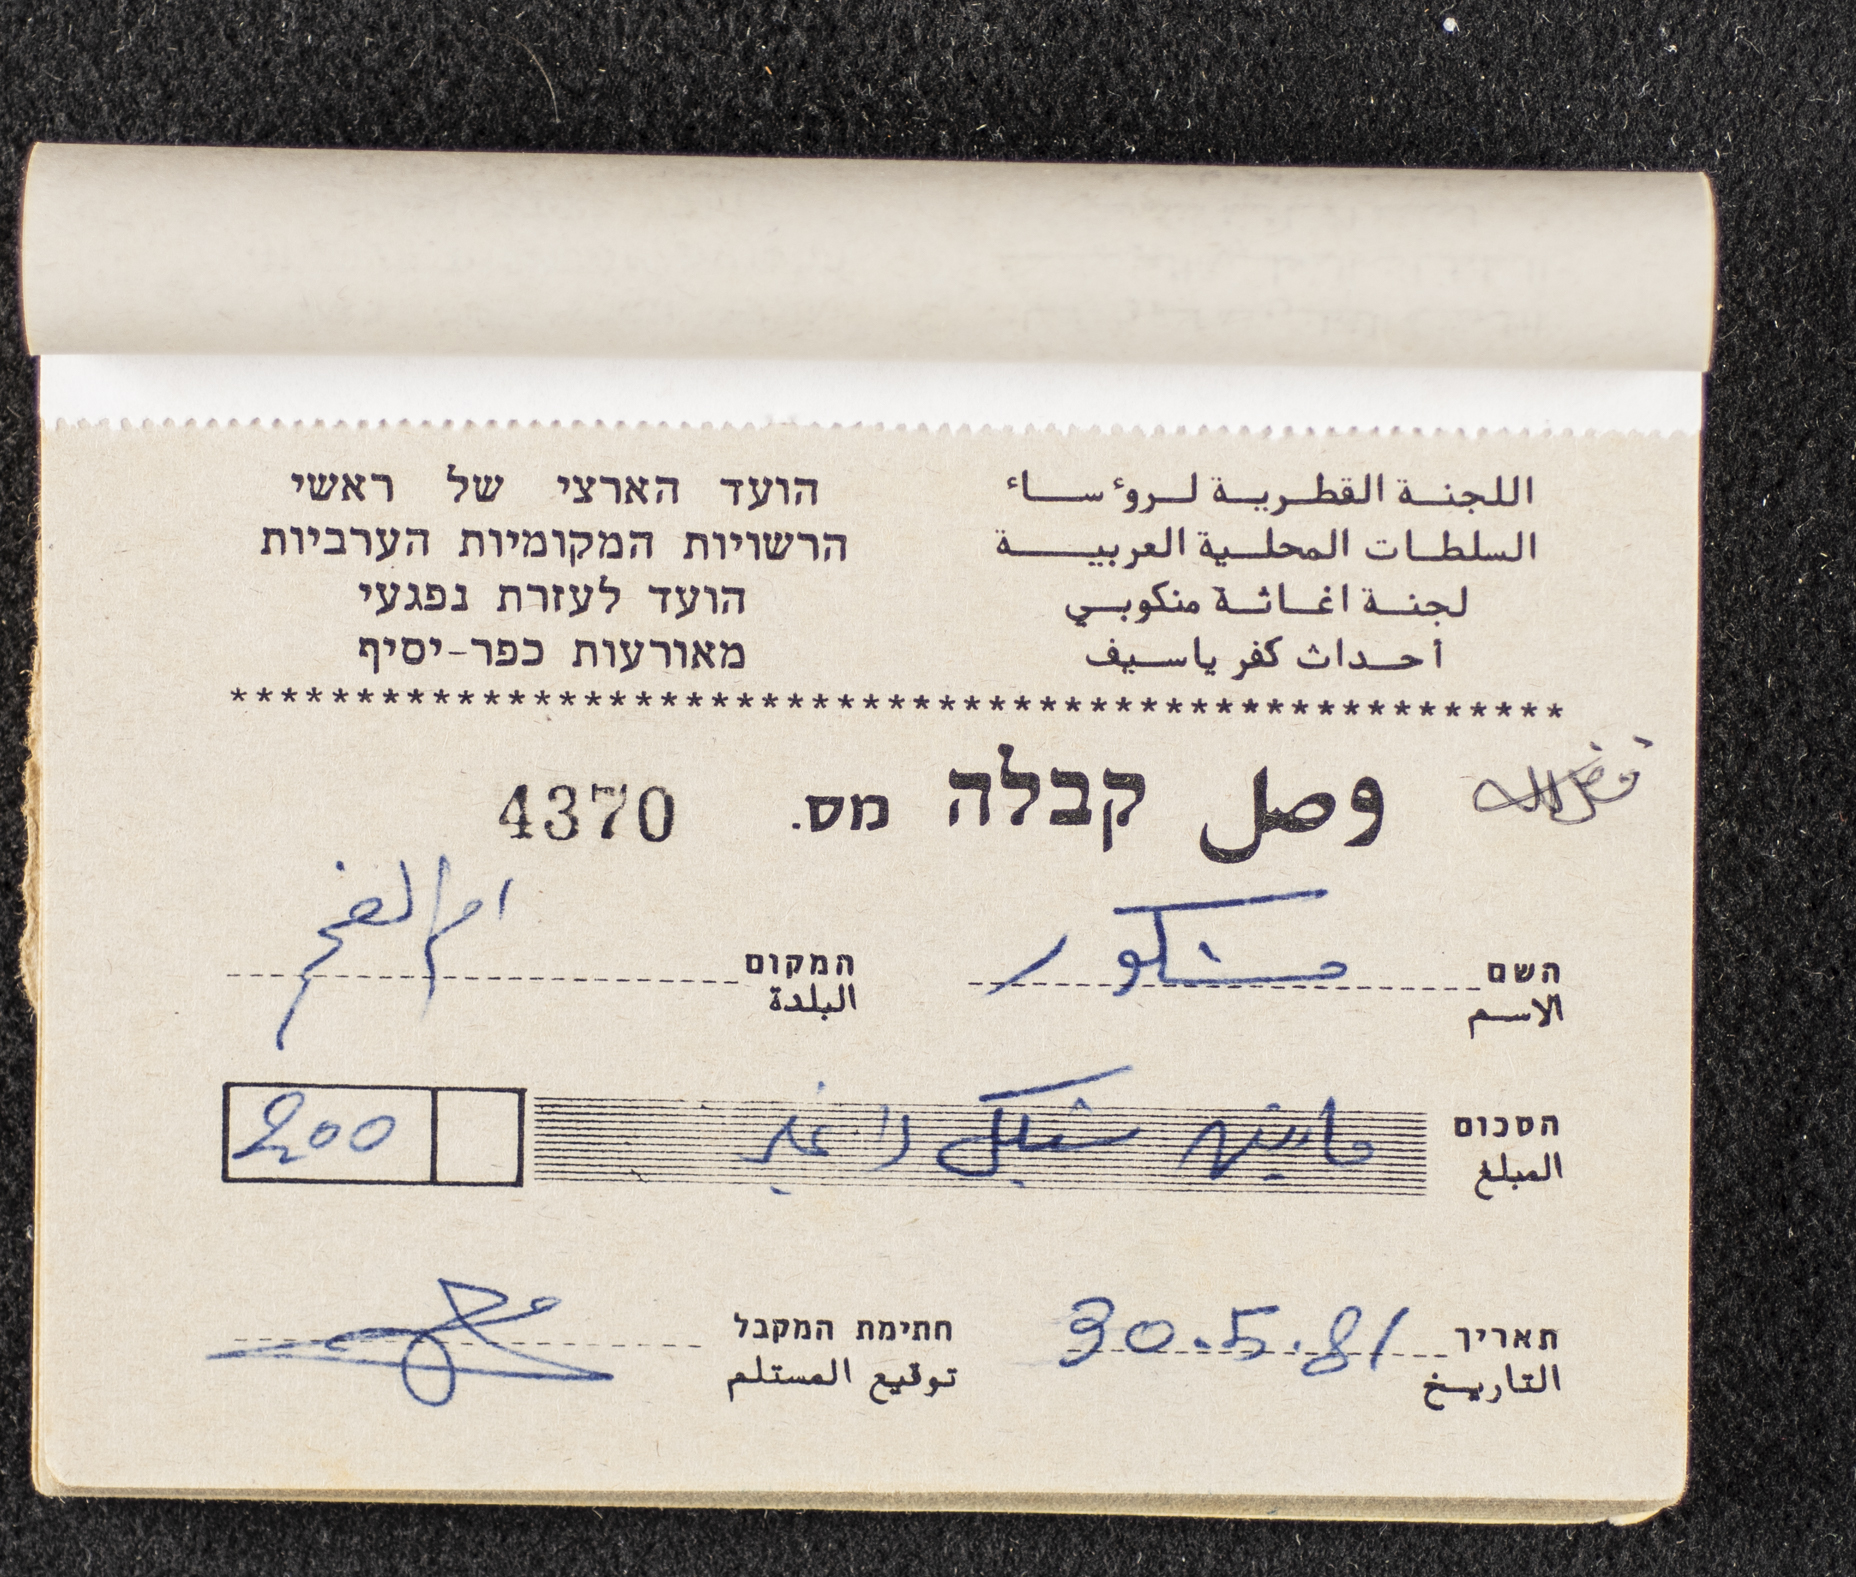 اللجنة القطرية لروءساء
السلطات المحلية العربية
لجنة اغاثة منكوبي
أحداث كفر ياسيف
הועד הארצי של ראשי
הרשויות המקומיות הערביות
הועד לעזרת נפגעי
מאורעות כפר-יסיף
****************************************************
وصل קבלה מס. 4370
השם مشكور המקום ام الفحم
الاسم البلدة
הסכום مايتين شيكل لا غير 200
المبلغ
תאריך 30.5.81 חתימת המקבל
التاريخ توقيع المستلم